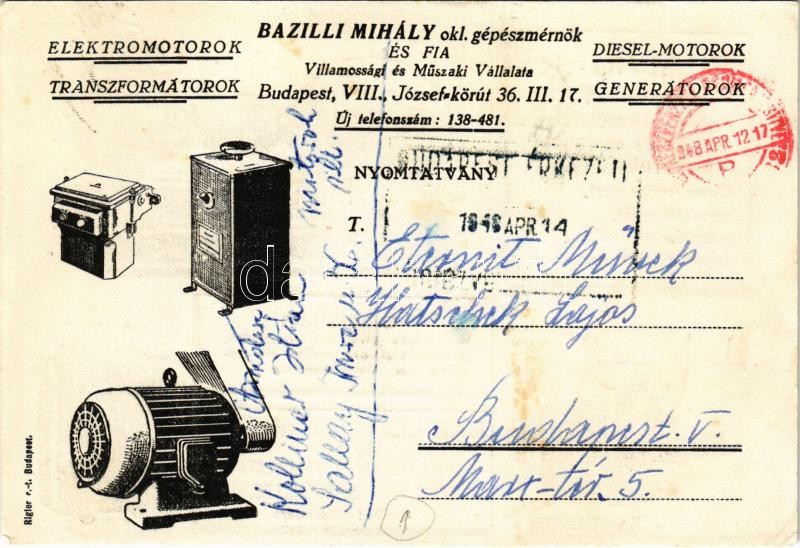 BAZILLI MIHÁLY okl. gépészmérnök
ÉS FIA
Villamossági és Műszaki Vállalata
Budapest, VIII., József-körút 36. III. 17.
Új telefonszám: 138-481.
ELEKTROMOTOROK
TRANSZFORMÁTOROK
DIESEL-MOTOROK
GENERÁTOROK
948 APR. 12 17
P
NYOMTATVÁNY
BUDAPEST ÉRKEZETT
1948 APR 14
T.
Eternit Művek
Hatschek Lajos
Budapest. V.
Marx-tér. 5.
motorok
Kollmer
Rigler r.-t. Budapest.
1